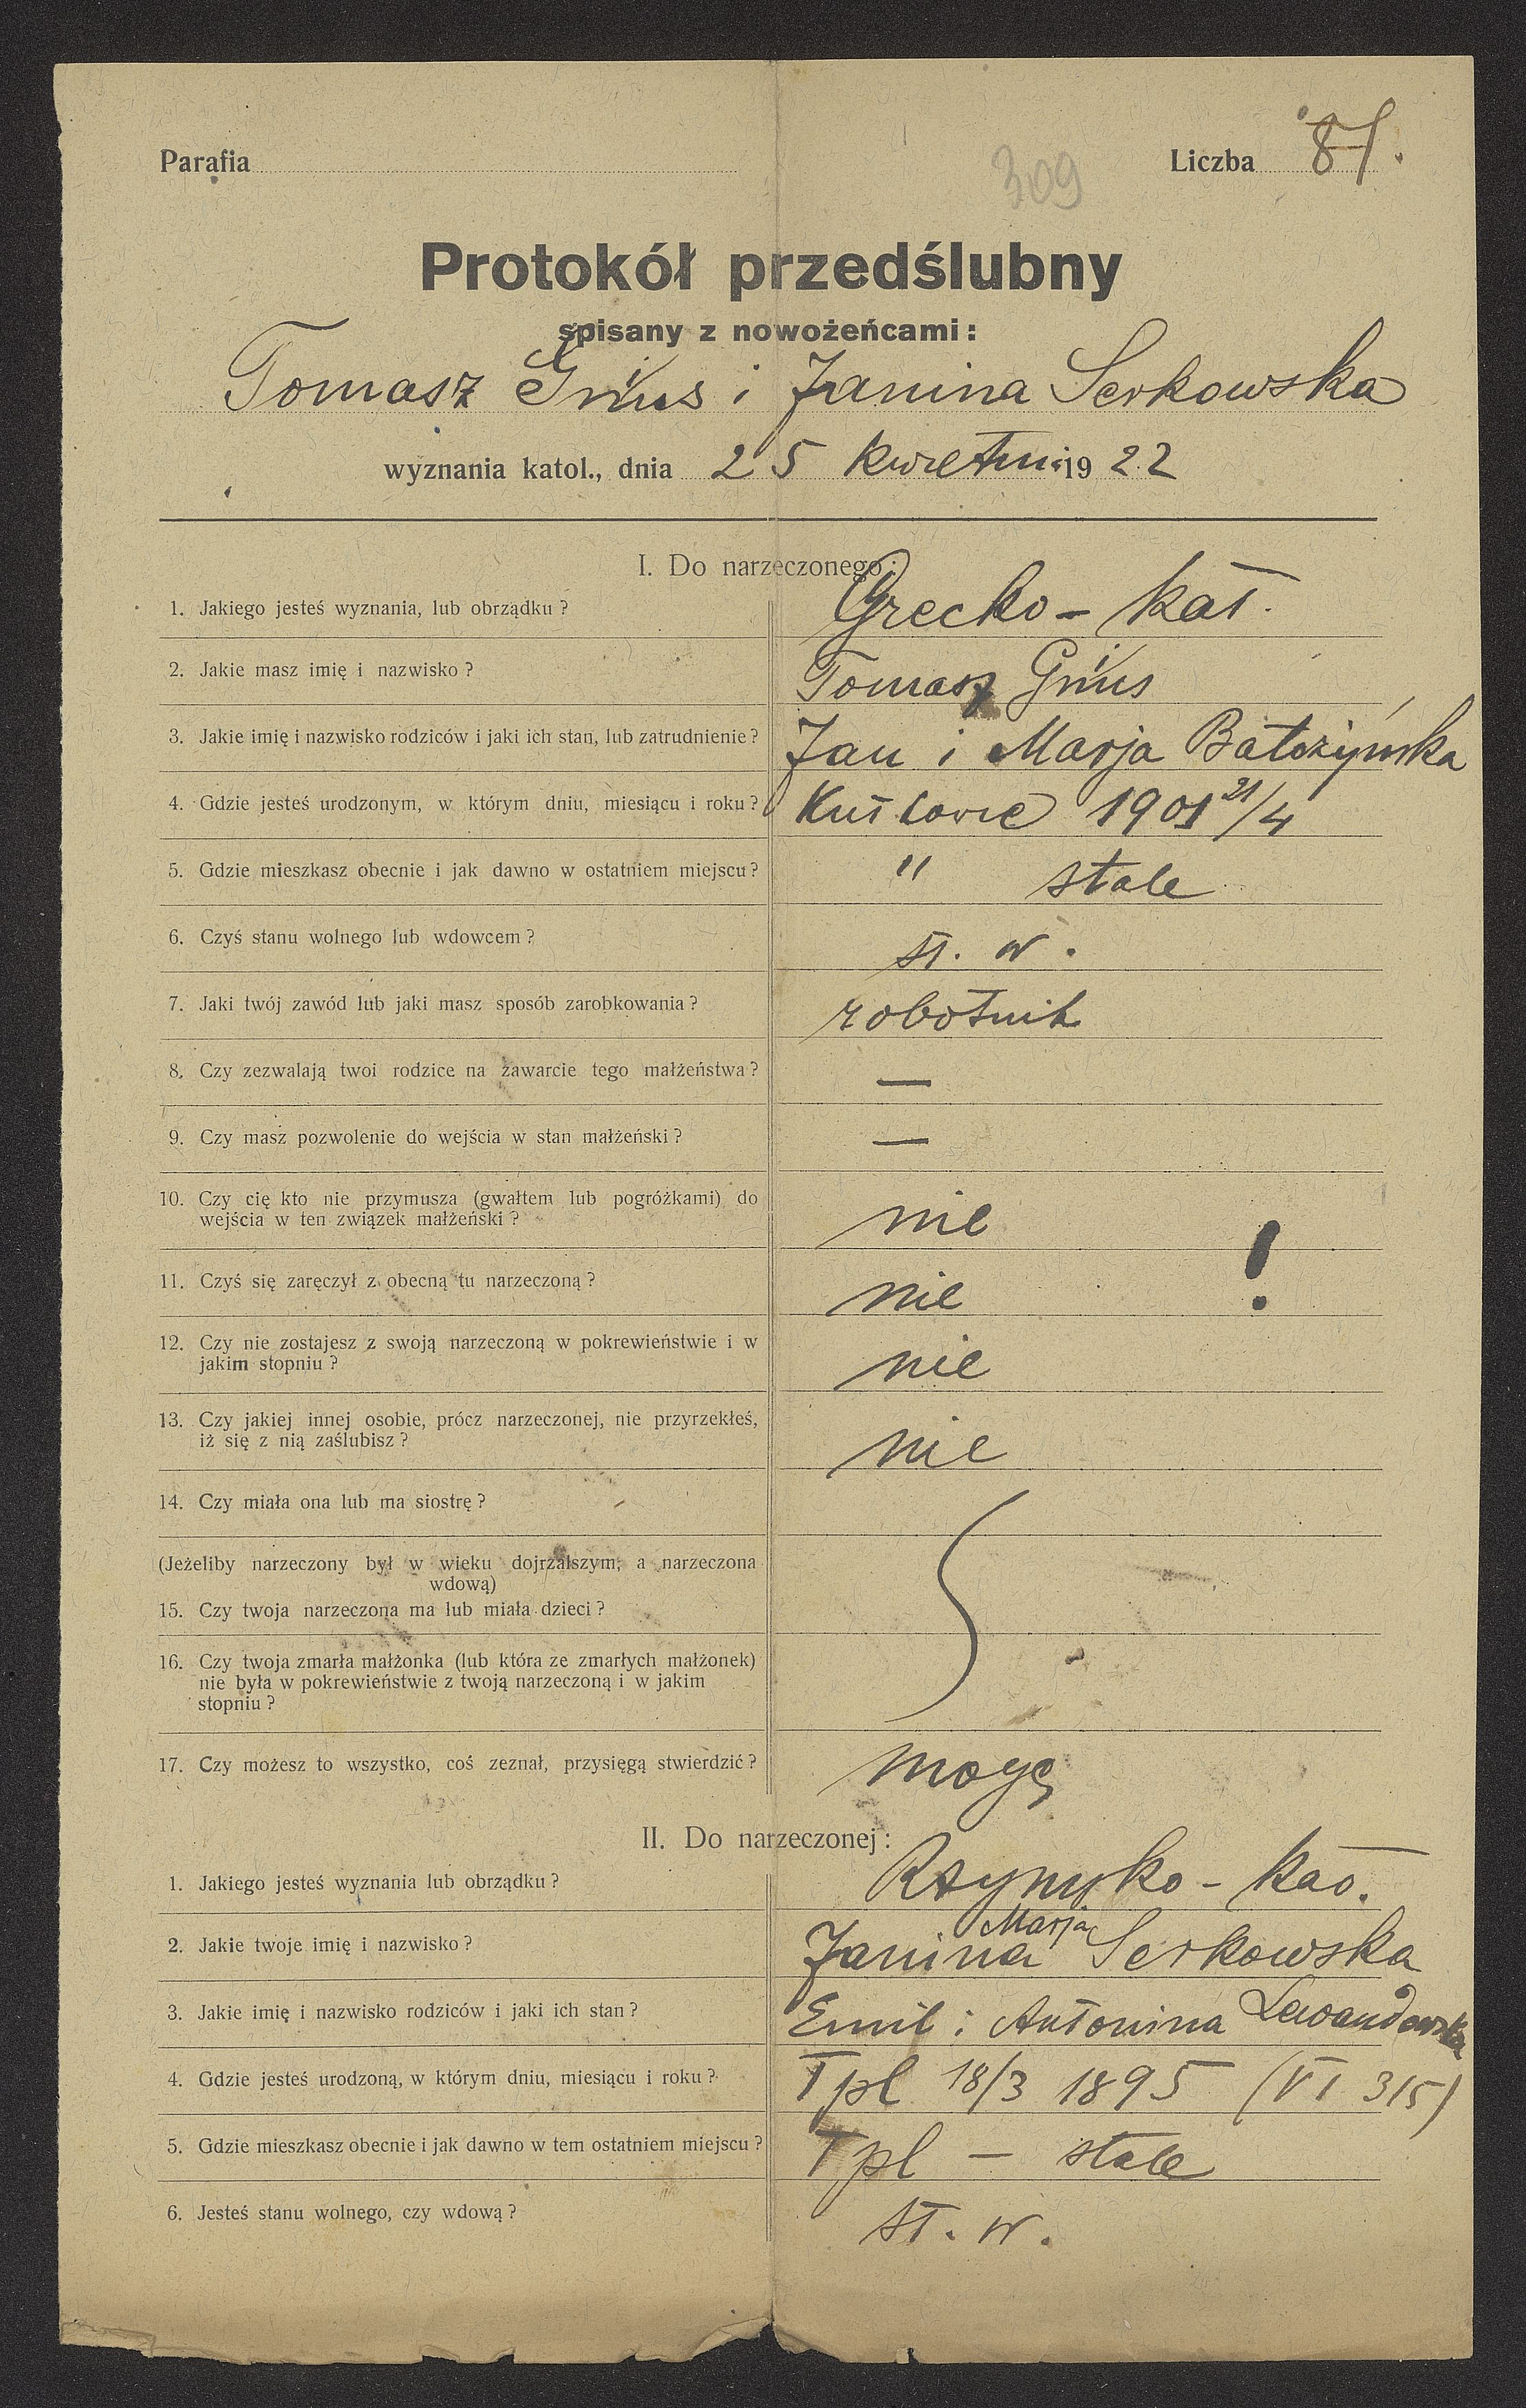 Parafia
309
Liczba 87.
Protokół przedślubny
spisany z nowożeńcami:
Tomasz i Janina Serkowska
wyznania katol., dnia 25 kwietni 1922
I. Do narzeczonego:
1. Jakiego jesteś wyznania, lub obrządku? Grecko-kat.
2. Jakie masz imię i nazwisko? Tomasz
3. Jakie imię i nazwisko rodziców i jaki ich stan, lub zatrudnienie? Jan i Marja
4. Gdzie jesteś urodzonym, w którym dniu, miesiącu i roku? 1901 21/4
5. Gdzie mieszkasz obecnie i jak dawno w ostatniem miejscu? " stale
6. Czyś stanu wolnego lub wdowcem? st. w.
7. Jaki twój zawód lub jaki masz sposób zarobkowania? robotnik
8. Czy zezwalają twoi rodzice na zawarcie tego małżeństwa? —
9. Czy masz pozwolenie do wejścia w stan małżeński? —
10. Czy cię kto nie przymusza (gwałtem lub pogróżkami) do
wejścia w ten związek małżeński? nie
11. Czyś się zaręczył z obecną tu narzeczoną? nie !
12. Czy nie zostajesz z swoją narzeczoną w pokrewieństwie i w
jakim stopniu? nie
13. Czy jakiej innej osobie, prócz narzeczonej, nie przyrzekłeś,
iż się z nią zaślubisz? nie
14. Czy miała ona lub ma siostrę?
(Jeżeliby narzeczony był w wieku dojrzalszym, a narzeczona
wdową)
15. Czy twoja narzeczona ma lub miała dzieci?
16. Czy twoja zmarła małżonka (lub która ze zmarłych małżonek)
nie była w pokrewieństwie z twoją narzeczoną i w jakim
stopniu?
17. Czy możesz to wszystko, coś zeznał, przysięgą stwierdzić? mogę
II. Do narzeczonej:
1. Jakiego jesteś wyznania lub obrządku? Rzymsko-kat.
Marja
2. Jakie twoje imię i nazwisko? Janina Serkowska
3. Jakie imię i nazwisko rodziców i jaki ich stan? Emil i Antonina Lewandowska
4. Gdzie jesteś urodzoną, w którym dniu, miesiącu i roku? Tpl 18/3 1895 (VI 315)
5. Gdzie mieszkasz obecnie i jak dawno w tem ostatniem miejscu? Tpl — stale
6. Jesteś stanu wolnego, czy wdową? st. w.